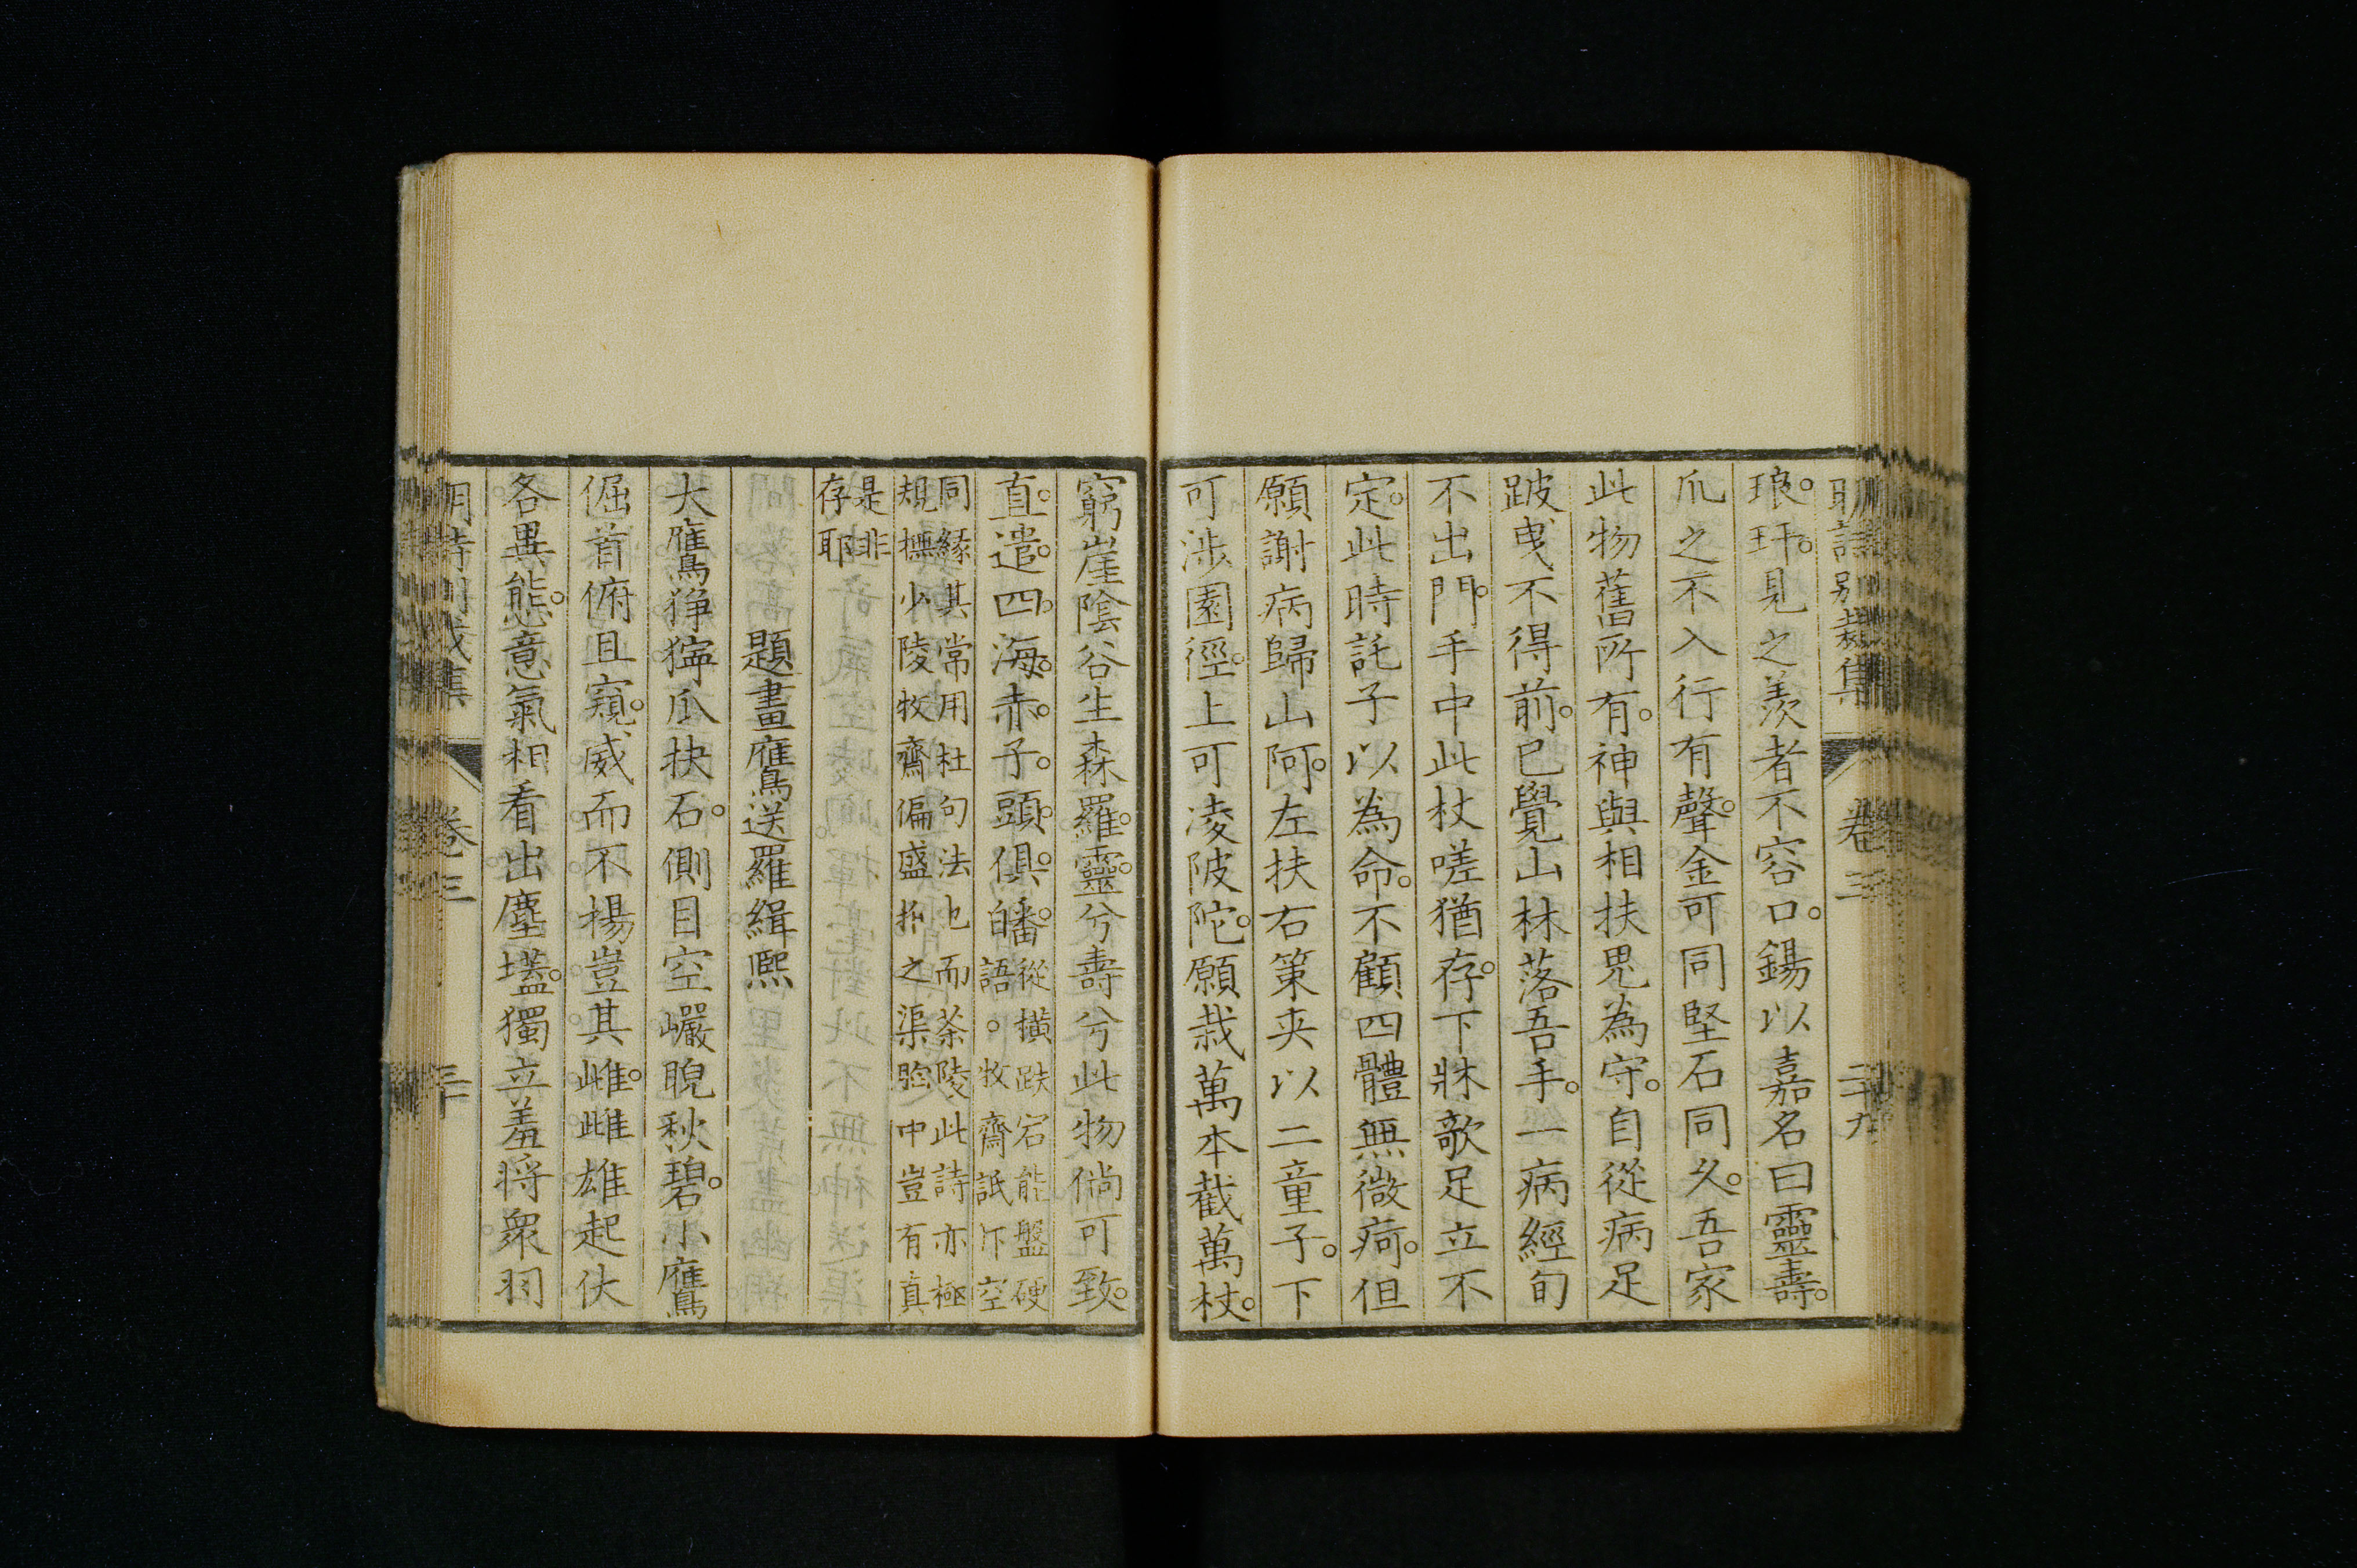 明詩別裁集 卷三 二十九
琅玕見之羨者不容口。錫以嘉名曰靈壽。
爪之不入行有聲。金可同堅石同久。吾家
此物舊所有。神與相扶鬼為守。自從病足
跛曳不得前。已覺山林落吾手。一病經旬
不出門。手中此杖嗟猶存。下牀欹足立不
定。此時託子以為命。不顧四體無微痾。但
願謝病歸山阿。左扶右策夾以二童子。下
可涉園徑。上可凌陂陀。願栽萬本截萬杖。
窮崖陰谷生森羅。靈兮壽兮此物倘可致。
直遣四海赤子頭俱皤。從橫跌宕能盤硬
白語。牧齋詆斥空
同緣其常用杜句法也而茶陵此詩亦極
規橅少陵牧齋偏盛推之渠胸中豈有真
是非
存耶
題畫鷹送羅緝熙
大鷹猙獰爪抉石。側目空巖睨秋碧。小鷹
倔首俯且窺。威而不揚豈其雌。雌雄起伏
各異態。意氣相看出塵壒。獨立羞將眾羽
明詩別裁集 卷三 三十